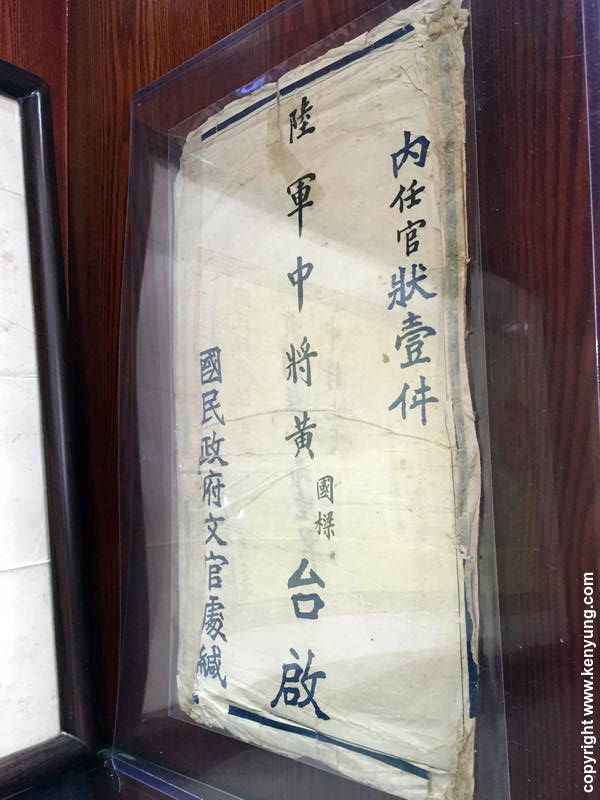 內任官狀壹件
陸軍中將黃國樑台啟
國民政府文官處緘
copyright www.kenyung.com